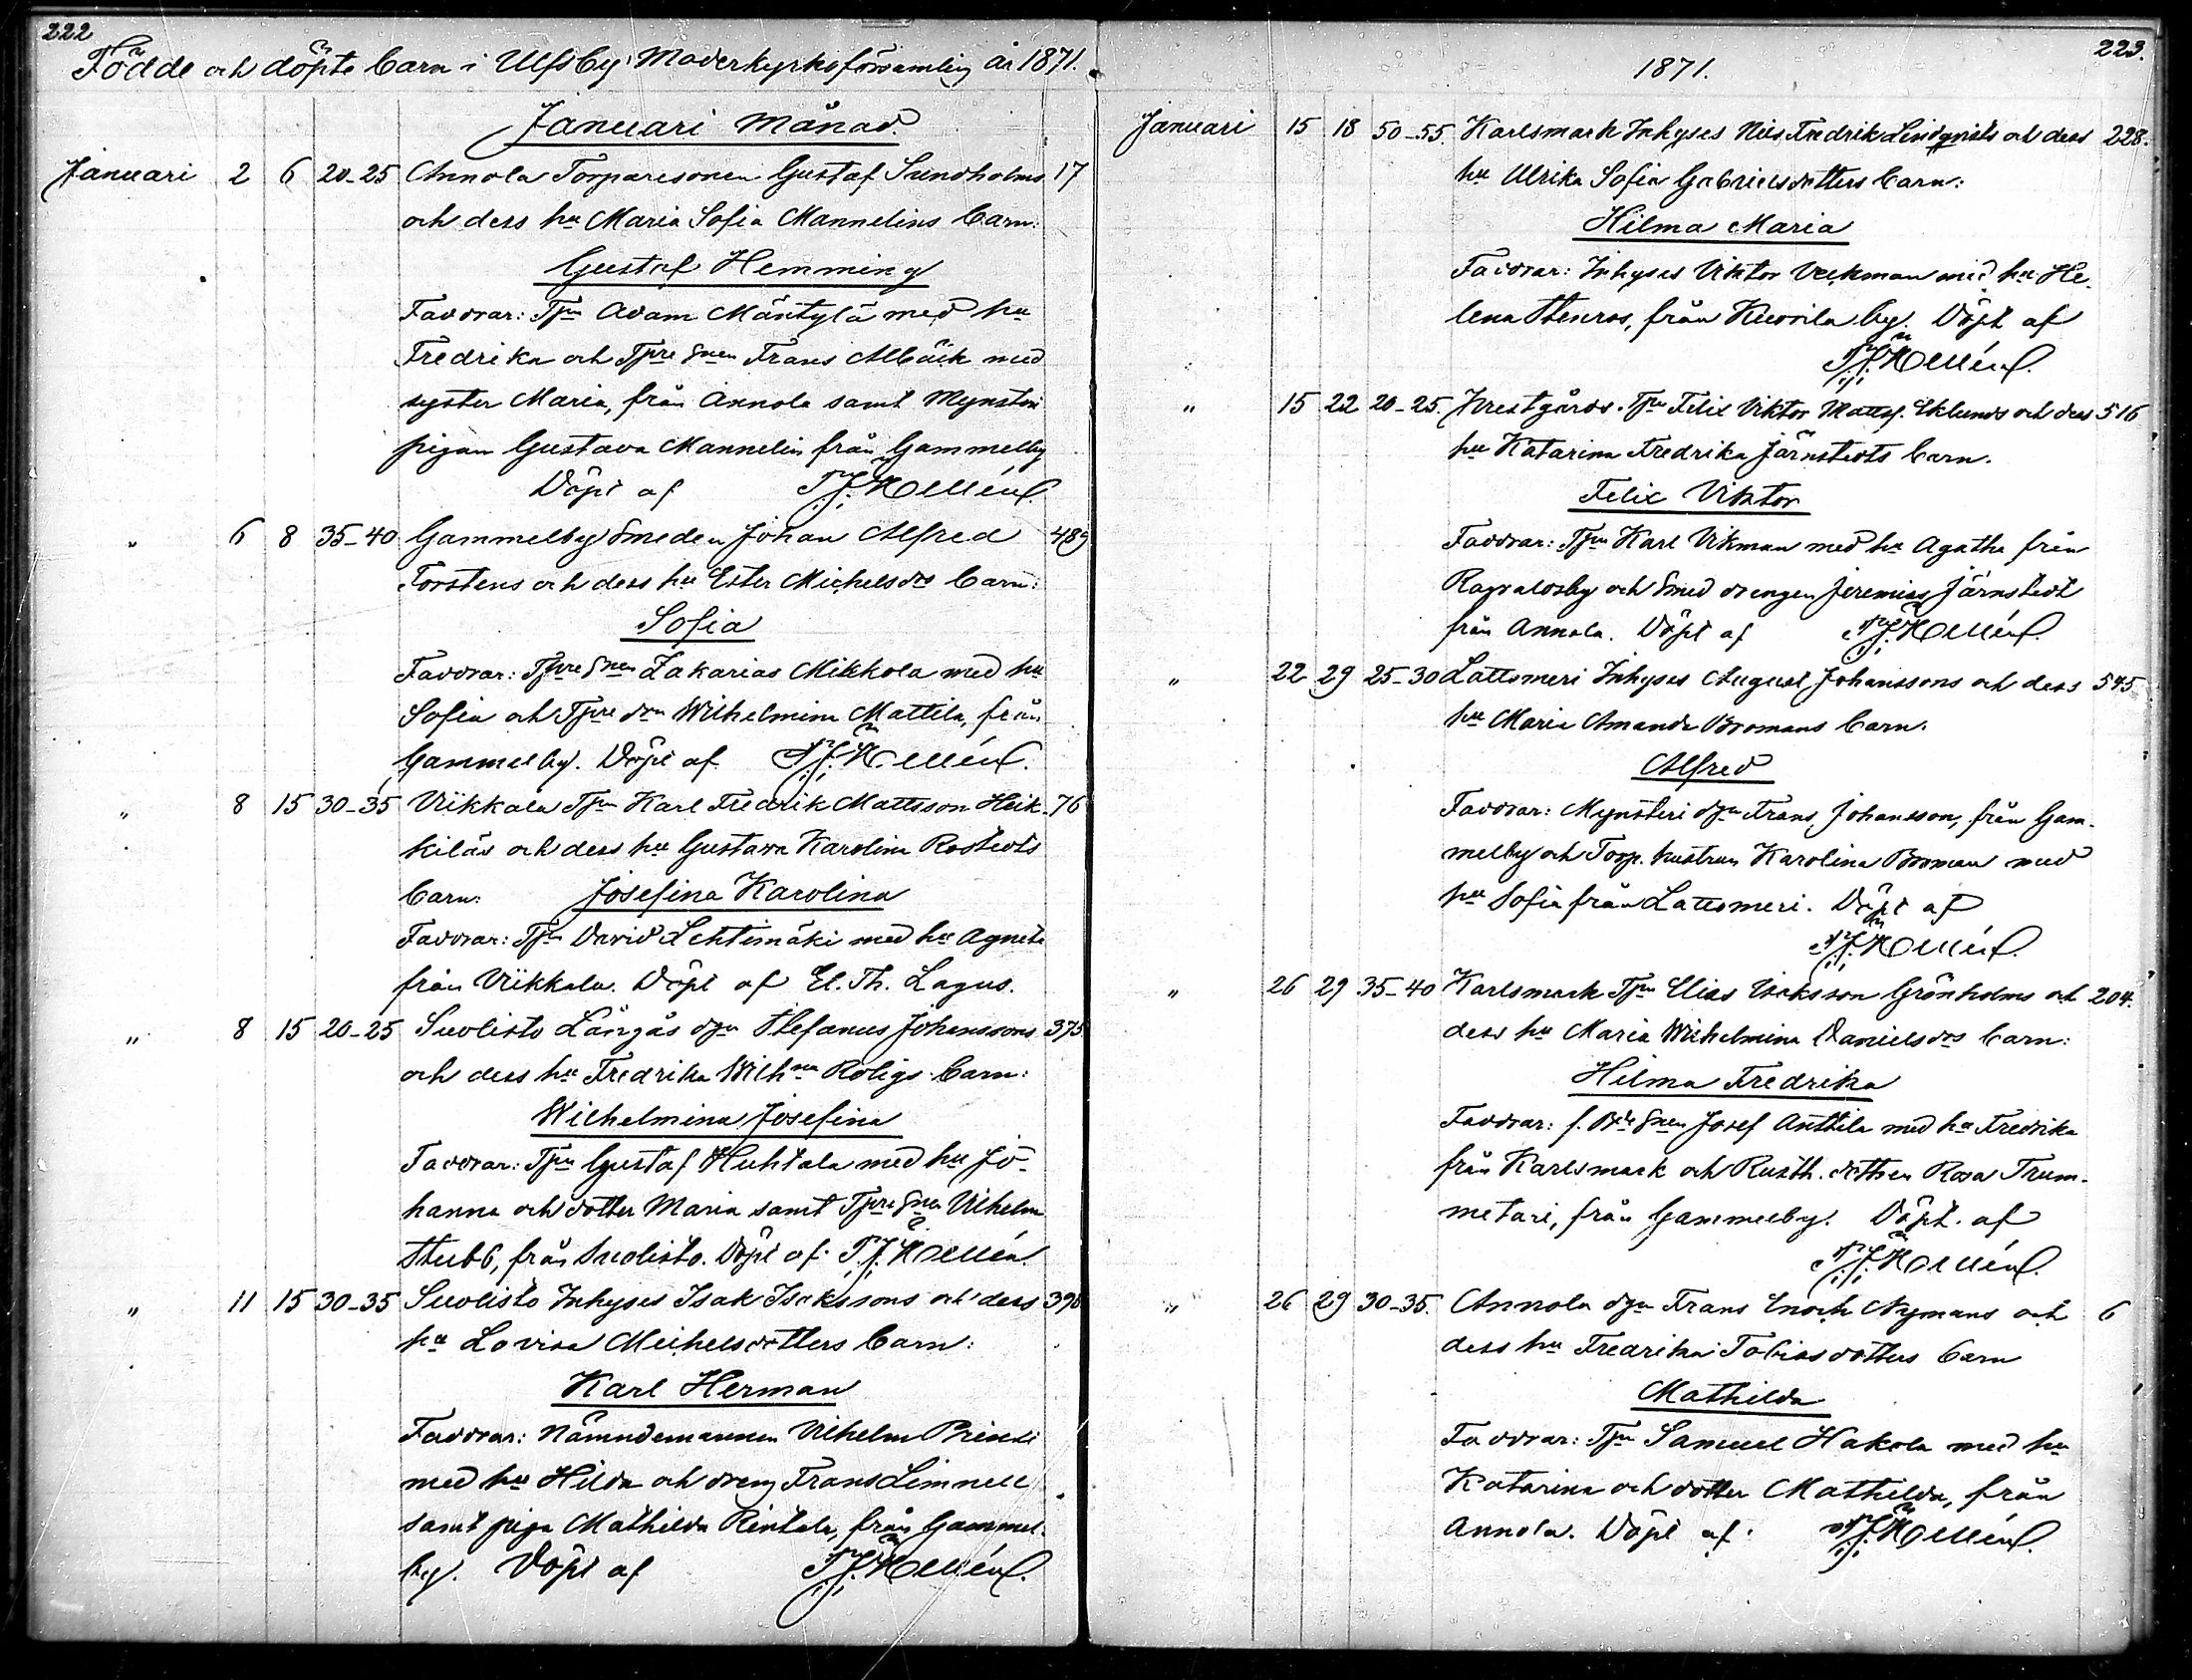 222
Födde och döpte barn i Ulfsby Moderkyrkoförsamling år 1871.
Januari Månad.
Januari 2 6 20-25 Annola Torparesonen Gustaf Sundholms 17
och dess hu Maria Sofia Mannelins barn:
Gustaf Hemming
Faddrar: Tpn Adam Mäntylä med hu
Fredrika och Tpre snen Frans Albäck med
syster Maria, från Annola samt Mynsteri
pigan Gustava Mannelin från Gammelby
Döpt af
" 6 8 35-40 Gammelby Smeden Johan Alfred 489
Torstens och dess hu Ester Michelsdrs barn:
Sofia
Faddrar: Tpre snen Zakarias Mikkola med hu
Sofia och Tpre drn Wilhelmina Mattila, från
Gammelby. Döpt af
" 8 15 30-35 Viikkala Tpn Karl Fredrik Mattsson Heik- 76
kiläs och dess hu Gustava Karolina Rostedts
barn: Josefina Karolina
Faddrar: Tpn David Lehtimäki med hu Agneta
från Viikkala. Döpt af El. Th. Lagus.
" 8 15 20-25 Suolisto Långås dgn Stefanus Johanssons 375
och dess hu Fredrika Wilhna Roligs barn:
Wilhelmina Josefina
Faddrar: Tpn Gustaf Huhtala med hu Jo-
hanna och dotter Maria samt Tpre snen Vilhelm
Stubb, från Suolisto. Döpt af
" 11 15 30-35 Suolisto Inhyses Isak Isakssons och dess 398
hu Lovisa Michelsdotters barn:
Karl Herman
Faddrar: Nämndemannen Vilhelm
med hu Hilda och dreng Frans Limnell
samt piga Mathilda Rintala, från Gammel-
by. Döpt af
223.
1871.
Januari 15 18 50-55. Karlsmark Inhyses Nils Fredrik Lindqvists och dess 228.
hu Ulrika Sofia Gabrielsdotters barn:
Hilma Maria
Faddrar: Inhyses Viktor Veckman med hu He-
lena Stenros, från by. Döpt af
" 15 22 20-25. Prestgårds. Tpn Felix Viktor Matts. Eklunds och dess 516
hu Katarina Fredrika Järnstedts barn.
Felix Viktor
Faddrar: Tpn Karl Vikman med hu Agatha från
Ragvaldsby och Smed drengen Jeremias Järnstedt
från Annola. Döpt af
" 22 29 25-30 Lattomeri Inhyses August Johanssons och dess 545
hu Maria Amanda Bromans barn.
Alfred
Faddrar: Mynsteri dgn Frans Johansson, från Gam-
melby och Torp. hustrun Karolina Broman med
hu Sofia från Lattomeri. Döpt af
" 26 29 35-40 Karlsmark Tpn Elias Isaksson Grönholms och 204.
dess hu Maria Wilhelmina Danielsdrs barn:
Hilma Fredrika
Faddrar: f. Bde snen Josef Anttila med hu Fredrika
från Karlsmark och Rusth. dottren Rosa Trum-
metari, från Gammelby. Döpt af
" 26 29 30-35. Annola dgn Frans Enoch Nymans och 6
dess hu Fredrika Tobiasdotters barn
Mathilda
Faddrar: Tpn Samuel Hakola med hu
Katarina och dotter Mathilda, från
Annola. Döpt af